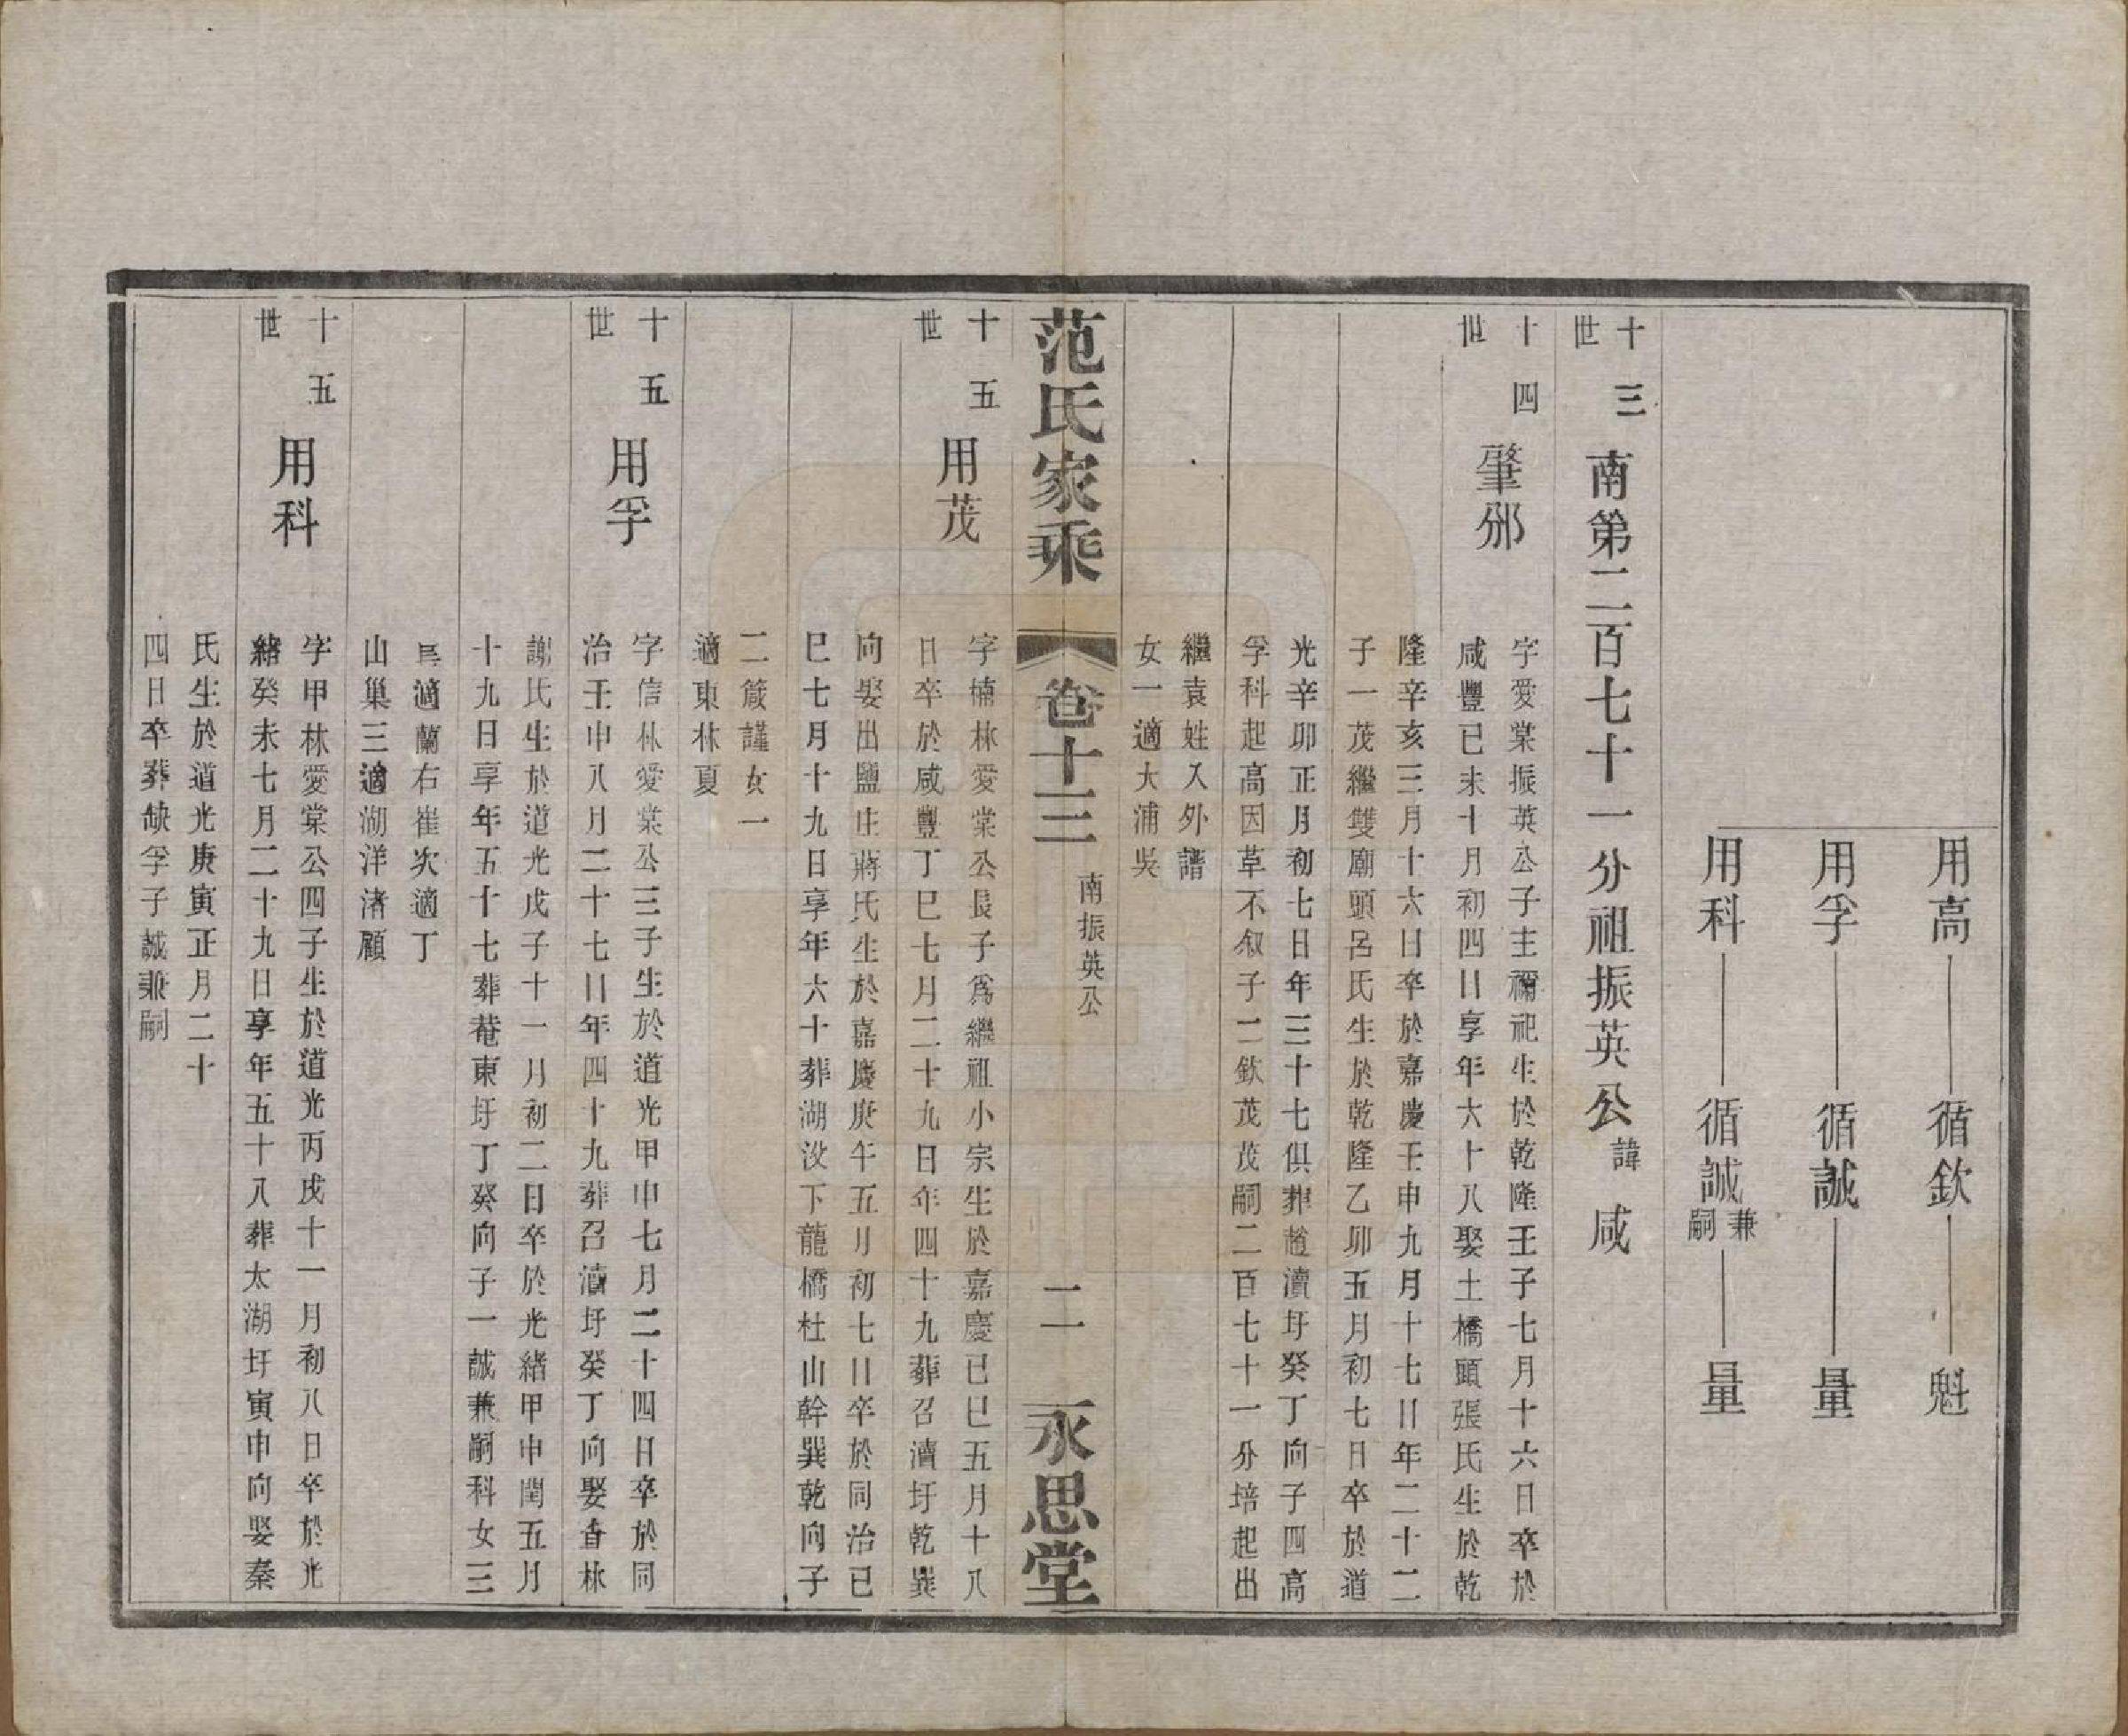 用高 循欽 魁
用孚 循誠 量
用科 循誠兼嗣 量
十三世 南第二百七十一分祖振英公諱咸
十四世 肇邠
字愛棠振英公子主禰祀生於乾隆壬子七月十六日卒於
咸豐已未十月初四日享年六十八娶土橋頭張氏生於乾
隆辛亥三月十六日卒於嘉慶壬申九月十七日年二十二
子一茂繼雙廟頭呂氏生於乾隆乙卯五月初七日卒於道
光辛卯正月初七日年三十七俱葬趙瀆圩癸丁向子四高
孚科起高因草不叙子二欽茂茂嗣二百七十一分培起出
繼袁姓入外譜
女一適大浦吳
范氏家乘 卷十三 南振英公 二 永思堂
十五世 用茂
字楠林愛棠公長子爲繼祖小宗生於嘉慶已巳五月十八
日卒於咸豐丁巳七月二十九日年四十九葬召瀆圩乾巽
向娶出鹽庄蔣氏生於嘉慶庚午五月初七日卒於同治已
巳七月十九日享年六十葬湖㳇下龍橋杜山幹巽乾向子
二箴謹女一
適東林夏
十五世 用孚
字信林愛棠公三子生於道光甲申七月二十四日卒於同
治壬申八月二十七日年四十九葬召瀆圩癸丁向娶香林
謝氏生於道光戊子十一月初二日卒於光緒甲申閏五月
十九日享年五十七葬菴東圩丁癸向子一誠兼嗣科女三
長適蘭右崔次適丁
山巢三適湖洋渚顧
十五世 用科
字甲林愛棠公四子生於道光丙戌十一月初八日卒於光
緒癸未七月二十九日享年五十八葬太湖圩寅申向娶秦
氏生於道光庚寅正月二十
四日卒葬缺孚子誠兼嗣